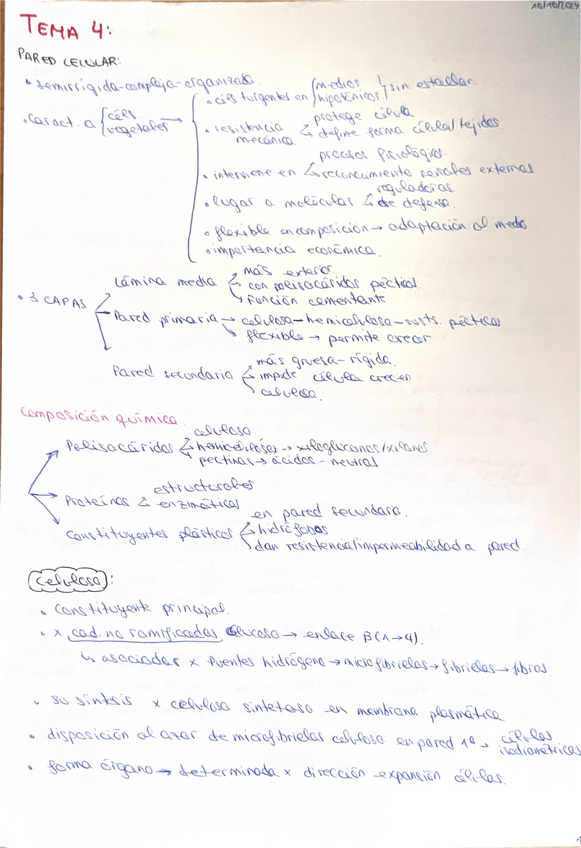 16/10/2024
TEMA 4:
PARED CELULAR:
• semirrígida-compleja-organizada
• caract. a { céls vegetales →
• céls turgentes en { medios hipotónicos } sin estallar
• resistencia mecánica < protege célula
define forma célula/tejidos
• interviene en < procesos fisiológicos
reconocimiento señales externas
• lugar a moléculas < reguladoras
de defensa.
• flexible en composición → adaptación al medio
• importancia económica.
• 3 CAPAS
Lámina media
más exterior.
con polisacáridos pécticos
función cementante
Pared primaria → celulosa-hemicelulosa-susts. pécticas
flexible → permite crecer
Pared secundaria
más gruesa-rígida.
impide célula crecer
celulosa.
Composición química.
Polisacáridos
celulosa
hemicelulosas → xiloglucanos/xilanos
pectinas → ácidos-neutras
Proteínas < estructurales
enzimáticas
Constituyentes plásticos
en pared secundaria.
hidrófonos
dan resistencia/impermeabilidad a pared
Celulosa:
• Constituyente principal.
• x cad. no ramificadas Glucosa → enlace B(1→4).
↳ asociadas x puentes hidrógeno → microfibrielas → fibrielas → fibras.
• su síntesis x celulosa sintetasa en membrana plasmática
• disposición al azar de microfibrielas celulosa en pared 1ª → células isodiamétricas
• forma órgano → determinada x dirección expansión células.